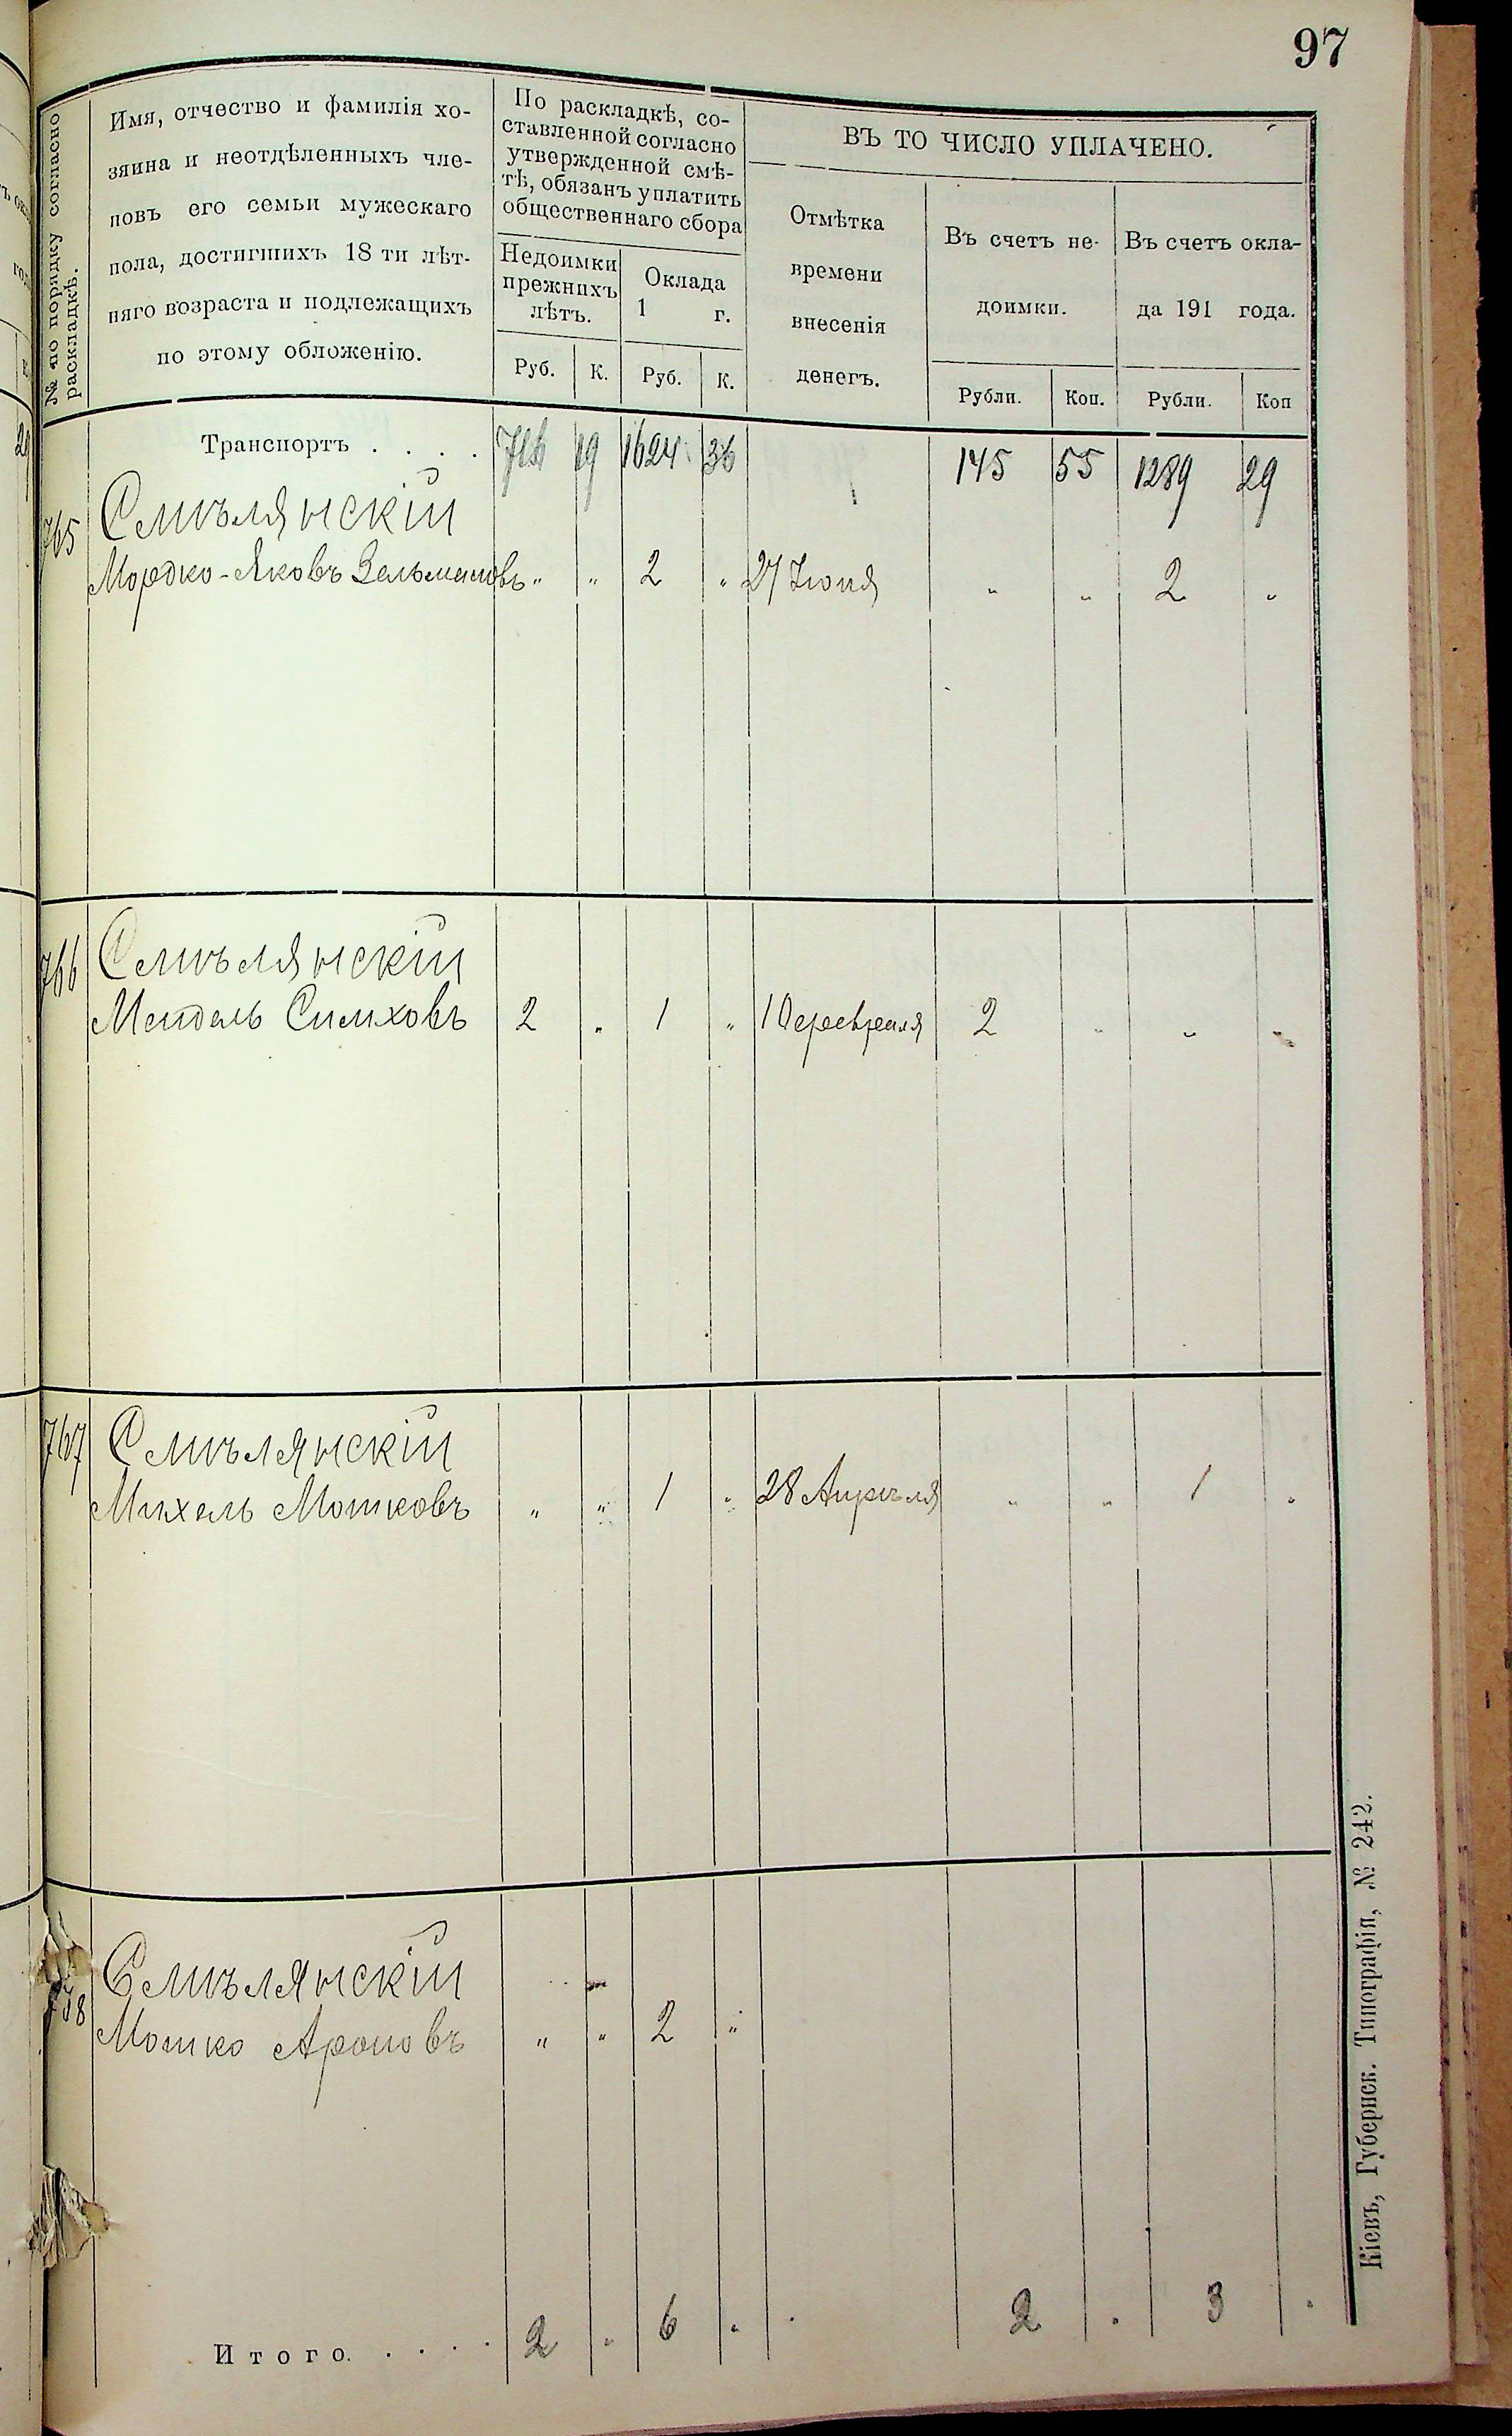 97
№ по порядку согласно раскладкѣ.
Имя, отчество и фамилія хо-
зяина и неотдѣленныхъ чле-
новъ его семьи мужескаго
пола, достигшихъ 18 ти лѣт-
няго возраста и подлежащихъ
по этому обложенію.
По раскладкѣ, со-
ставленной согласно
утвержденной смѣ-
тѣ, обязанъ уплатить
общественнаго сбора
Недоимки
прежнихъ
лѣтъ.
Оклада
1 г.
Руб. К. Руб. К.
ВЪ ТО ЧИСЛО УПЛАЧЕНО.
Отмѣтка
времени
внесенія
денегъ.
Въ счетъ не-
доимки.
Въ счетъ окла-
да 191 года.
Рубли. Коп. Рубли. Коп
Транспортъ . . . . 19 1624 36 145 55 1289 29
765 Смѣлянскій
Мордко-Яковъ Зельмановъ " " 2 " 27 Іюня " " 2 "
766 Смѣлянскій
Мендель Симховъ 2 " 1 " 10 февраля 2 " " "
767 Смѣлянскій
Михель Мошковъ " " 1 " 28 Апрѣля " " 1 "
Смѣлянскій
Мошко Ароновъ " " 2 "
Итого. . . . . 2 " 6 " 2 " 3 "
Кіевъ, Губернск. Типографія, № 242.